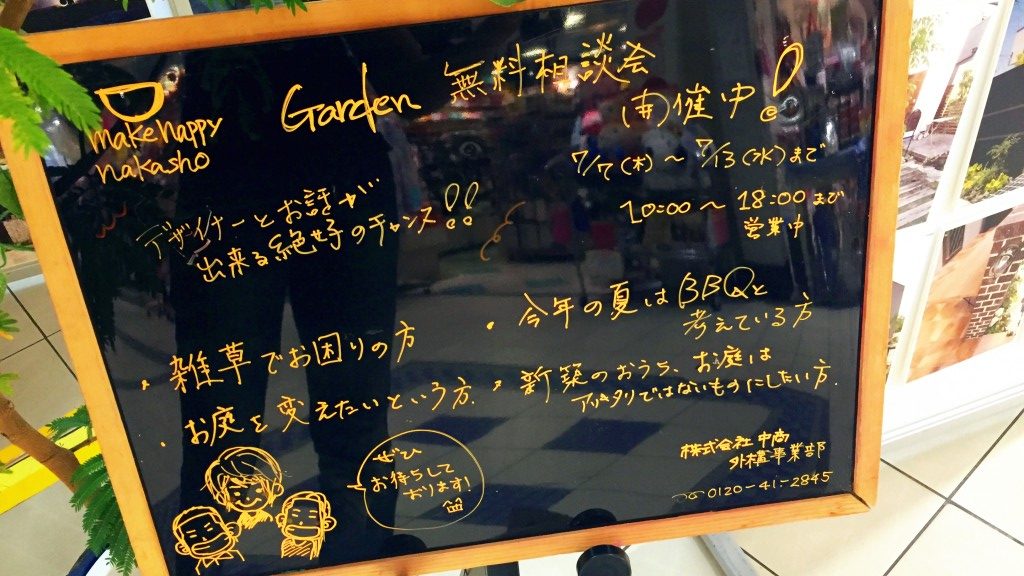 make happy
nakasho
Garden 無料相談会
開催中!
7/7(木)～7/13(水)まで
10:00～18:00まで
営業中
デザイナーとお話が
出来る絶好のチャンス!!
・雑草でお困りの方
・お庭を変えたいという方.
・今年の夏はBBQと
考えている方
・新築のおうち、お庭は
アリキタリではないものにしたい方.
ぜひ
お待ちして
おります!
株式会社中商
外構事業部
0120-41-2845